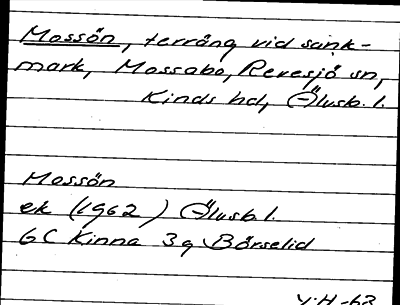 Mossön, terräng vid sank-
mark, Mossabo, Revesjö sn,
Kinds hd, Älvsb. l.
Mossön
ek (1962) Älvsb l.
6C Kinna 3g Börselid
V.H -63